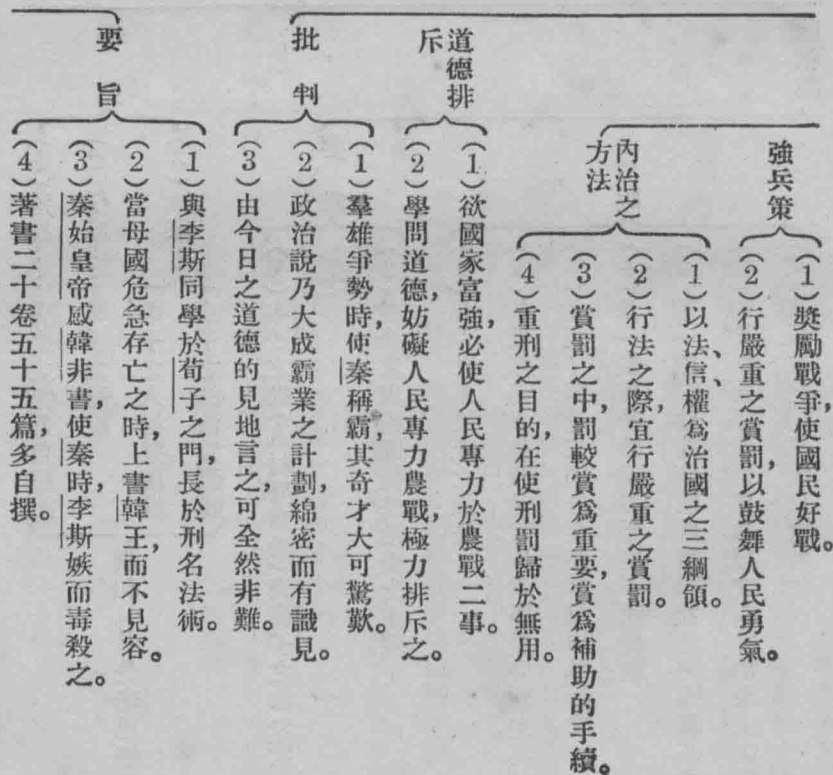 強兵策
(1)獎勵戰爭,使國民好戰。
(2)行嚴重之賞罰,以鼓舞人民勇氣。
內治之
方法
(1)以法、信、權為治國之三綱領。
(2)行法之際,宜行嚴重之賞罰。
(3)賞罰之中,罰較賞爲重要,賞爲補助的手續。
(4)重刑之目的,在使刑罰歸於無用。
道德排
斥
(1)欲國家富強,必使人民專力於農戰二事。
(2)學問道德,妨礙人民專力農戰,極力排斥之。
批判
(1)羣雄爭勢時,使秦稱霸,其奇才大可驚歎。
(2)政治說乃大成霸業之計劃,綿密而有識見。
(3)由今日之道德的見地言之,可全然非難。
要旨
(1)與李斯同學於荀子之門,長於刑名法術。
(2)當母國危急存亡之時,上書韓王,而不見容。
(3)秦始皇帝感韓非書,使秦時,李斯嫉而毒殺之。
(4)著書二十卷五十五篇,多自撰。